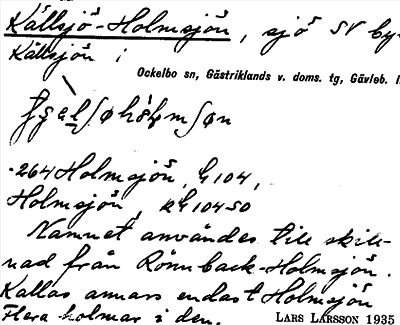 Källsjö-Holmsjön, sjö SV by
Källsjön i
Ockelbo sn, Gästriklands v. doms. tg, Gävleb. l
264 Holmsjön, G 104,
Holmsjön, kG 104 SO
Namnet användes till skill-
nad från Rönnback-Holmsjön.
Kallas annars endast Holmsjön
Flera holmar i den.
LARS LARSSON 1935